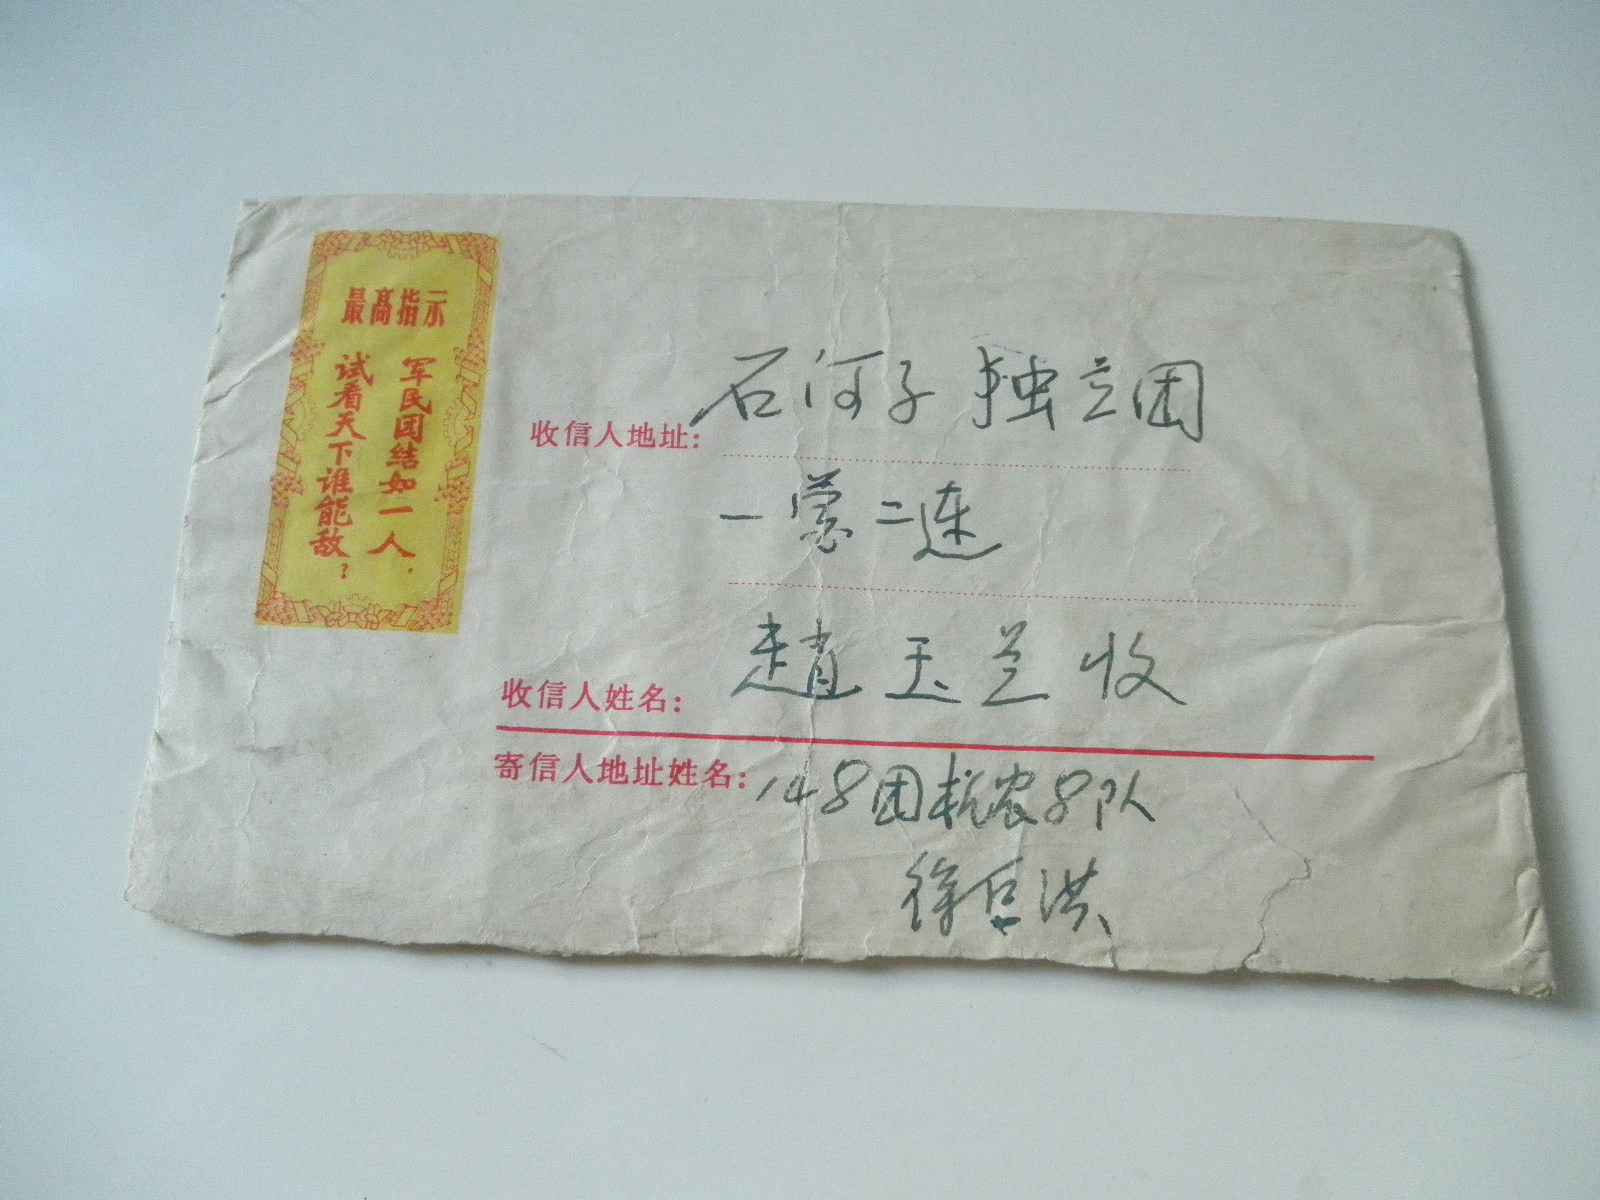 最高指示
军民团结如一人，
试看天下谁能敌？
收信人地址：石河子 独立团
一营二连
收信人姓名：趙玉兰 收
寄信人地址姓名：148团 农8队
徐巨洪